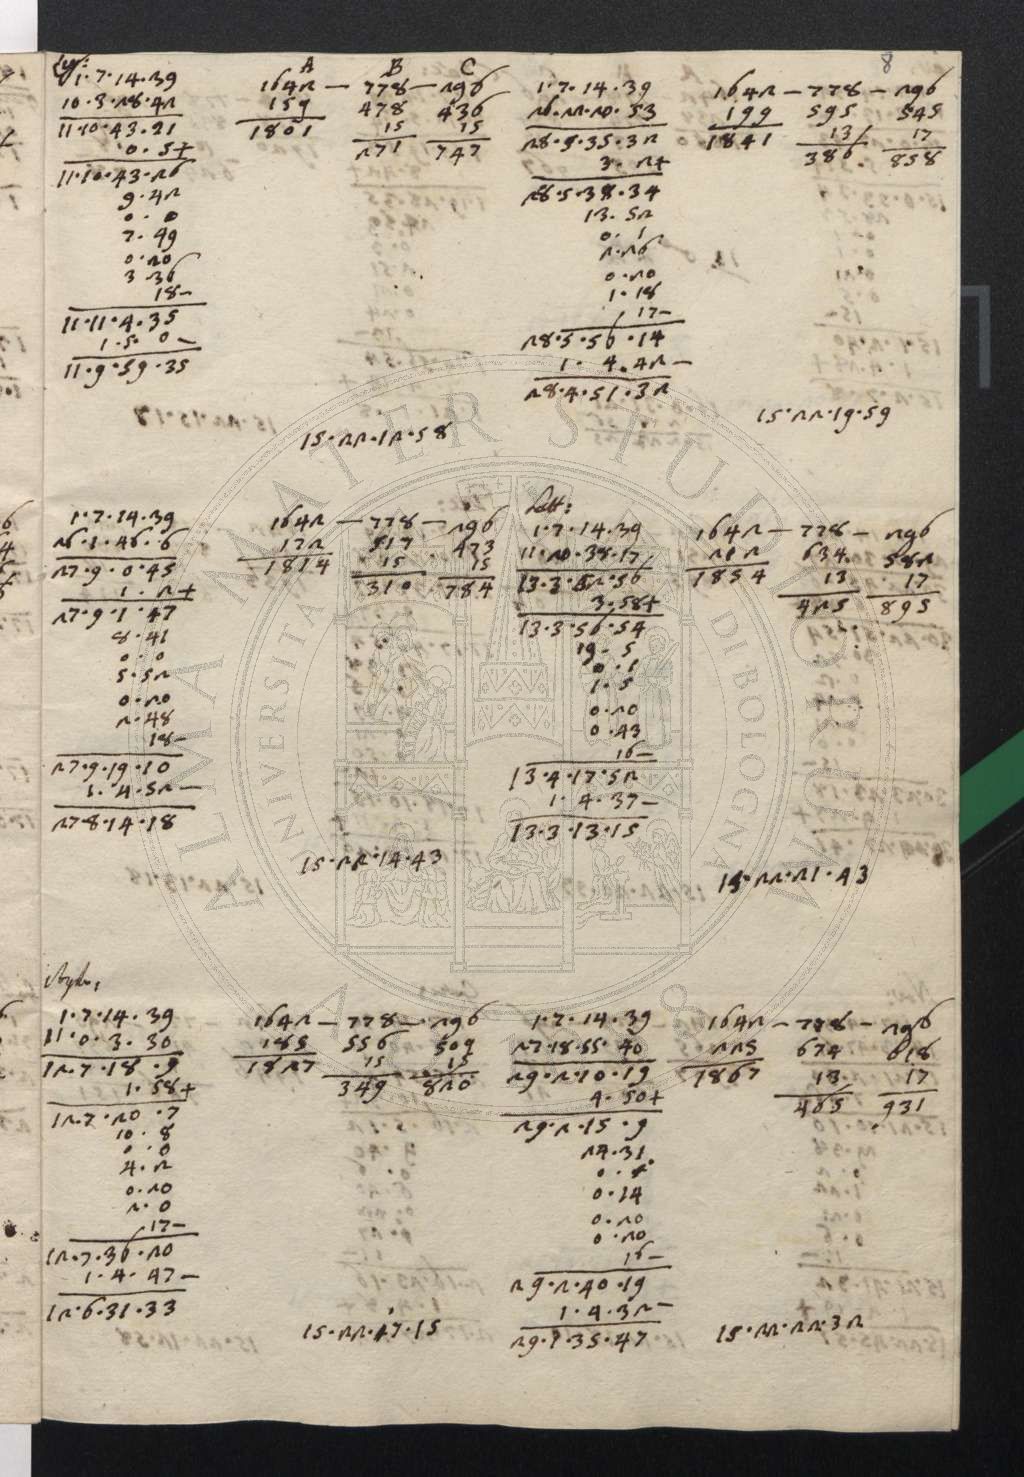 8
Lyr:
1·7·14·39
10·3·28·42
11·10·43·21
0·5+
11·10·43·26
9·42
0·0
7·49
0·20
3·36
18–
11·11·4·35
1·5·0–
11·9·59·35
A B C
1642 – 778 – 296
159 478 436
1801 15 15
271 747
15·22·12·58
1·7·14·39
26·22·20·53
28·5·35·32
3·2+
28·5·38·34
13·52
0·1
2·26
0·20
1·18
17–
28·5·56·14
1·4·42–
28·4·51·32
1642 – 778 – 296
199 595 545
1841 13 17
386 858
15·22·19·59
1·7·14·39
26·1·46·6
27·9·0·45
1·2+
27·9·1·47
8·41
0·0
5·52
0·20
2·48
18–
27·9·19·10
1·4·52–
27·8·14·18
1642 – 778 – 296
172 517 473
1814 15 15
310 784
15·22·14·43
1·7·14·39
11·20·38·17
13·3·52·56
3·58+
13·3·56·54
19·5
0·1
1·5
0·20
0·43
16–
13·4·17·52
1·4·37–
13·3·13·15
1642 – 778 – 296
212 634 582
1854 13 17
425 895
15·22·21·43
1·7·14·39
11·0·3·30
12·7·18·9
1·58+
12·7·20·7
10·8
0·0
4·2
0·20
2·0
17–
12·7·36·20
1·4·47–
12·6·31·33
1642 – 778 – 296
185 556 509
1827 15 15
349 820
15·22·17·15
1·7·14·39
27·18·55·40
29·2·10·19
4·50+
29·2·15·9
24·31
0·14
0·20
0·20
16–
29·2·40·19
1·4·32–
29·1·35·47
1642 – 778 – 296
225 674 618
1867 13 17
465 931
15·22·22·32
ALMA MATER STUDIORUM
UNIVERSITÀ DI BOLOGNA